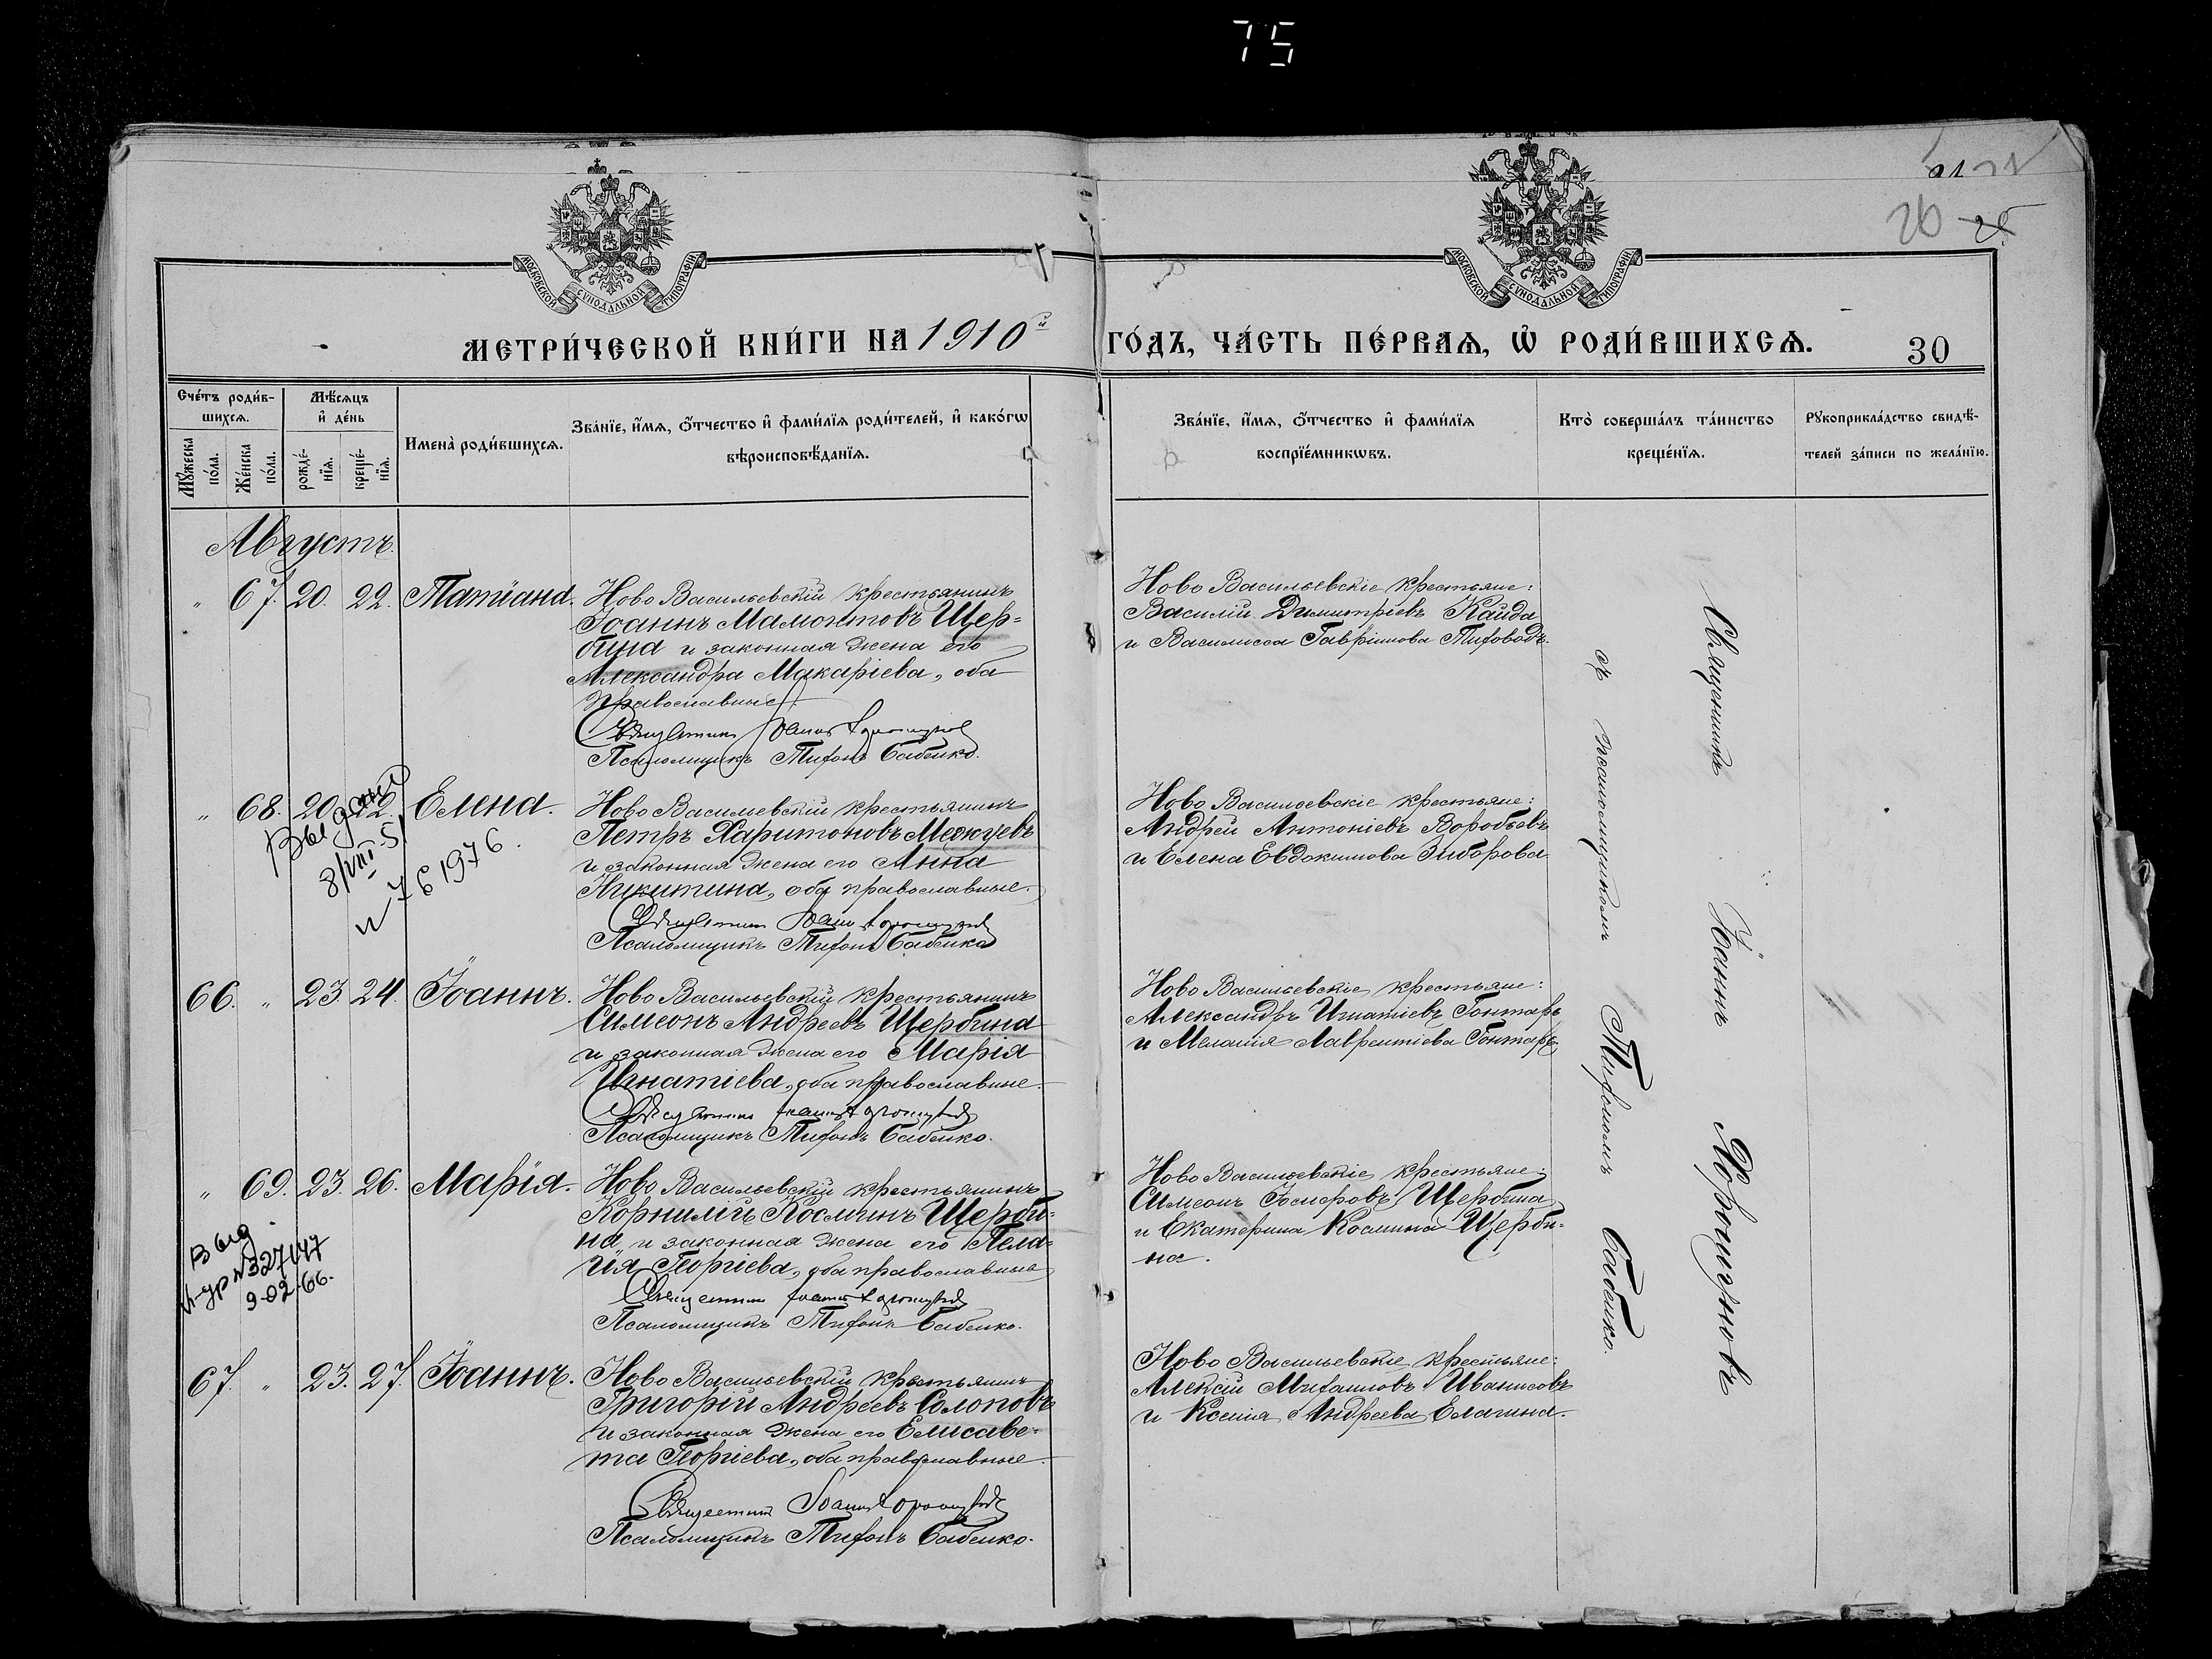 75
26 25
МОСКОВСКОЙ СУНОДАЛЬНОЙ ТИПОГРАФІИ
МОСКОВСКОЙ СУНОДАЛЬНОЙ ТИПОГРАФІИ
МЕТРИ́ЧЕСКОЙ КНИ́ГИ НА 1910й ГО́ДЪ, ЧА́СТЬ ПЕ́РВАѦ, Ѡ҆ РОДИ́ВШИХСѦ. 30
Сче́тъ роди́в-
шихсѧ.
Мꙋ́жеска по́ла.
Же́нска по́ла.
Мѣ́сѧцъ
и҆ де́нь
рожде́-
нїѧ.
креще́-
нїѧ.
Имена̀ роди́вшихсѧ.
Зва́нїе, и҆́мѧ, ѻ҆́тчество и҆ фами́лїѧ роди́телей, и҆ како́гѡ
вѣроисповѣ́данїѧ.
Зва́нїе, и҆́мѧ, ѻ҆́тчество и҆ фами́лїѧ
воспрїе́мникѡвъ.
Кто̀ соверша́лъ та́инство
креще́нїѧ.
Рꙋкоприкла́дство свидѣ́-
телей за́писи по жела́нїю.
Августъ.
" 67. 20. 22. Татіана.
Ново Васильевскій крестьянинъ
Іоаннъ Мамонтовъ Щер-
бина и законная жена его
Александра Макаріева, оба
православные.
Священникъ Іоаннъ Хорошуновъ
Псаломщикъ Тифонъ Бабенко.
Ново Васильевскіе крестьяне:
Василій Димитріевъ Кайда
и Василисса Гавріилова Тифоводъ.
" 68. 20. 22. Елена.
Выдана
8/VIII-51
1976
Ново Васильевскій крестьянинъ
Петръ Харитоновъ Межуевъ
и законная жена его Анна
Никитина, оба православные.
Священникъ Іоаннъ Хорошуновъ
Псаломщикъ Тифонъ Бабенко
Ново Васильевскіе крестьяне:
Андрей Антоніевъ Воробьевъ
и Елена Евдокимова Зиборова
66. " 23. 24. Іоаннъ.
Ново Васильевскій крестьянинъ
Симеонъ Андреевъ Щербина
и законная жена его Марія
Игнатіева, оба православные.
Священникъ Іоаннъ Хорошуновъ
Псаломщикъ Тифонъ Бабенко.
Ново Васильевскіе крестьяне:
Александръ Игнатіевъ Гонтарь
и Меланія Лаврентіева Гонтарь.
" 69. 23. 26. Марія.
Выд
9-02-66.
Ново Васильевскій крестьянинъ
Корнилій Косминъ Щерби-
на и законная жена его Пела-
гія Георгіева, оба православные
Священникъ Іоаннъ Хорошуновъ
Псаломщикъ Тифонъ Бабенко.
Ново Васильевскіе крестьяне:
Симеонъ Щербина
и Екатерина Космина Щерби-
на.
67. " 23. 27. Іоаннъ.
Ново Васильевскій крестьянинъ
Григорій Андреевъ Солоповъ
и законная жена его Елисаве-
та Георгіева, оба православные.
Священникъ Іоаннъ Хорошуновъ
Псаломщикъ Тифонъ Бабенко.
Ново Васильевскіе крестьяне:
Алексій Михаиловъ Иванисовъ
и Ксенія Андреева Елагина.
Священникъ Іоаннъ Хорошуновъ
съ псаломщикомъ Тифономъ Бабенко.